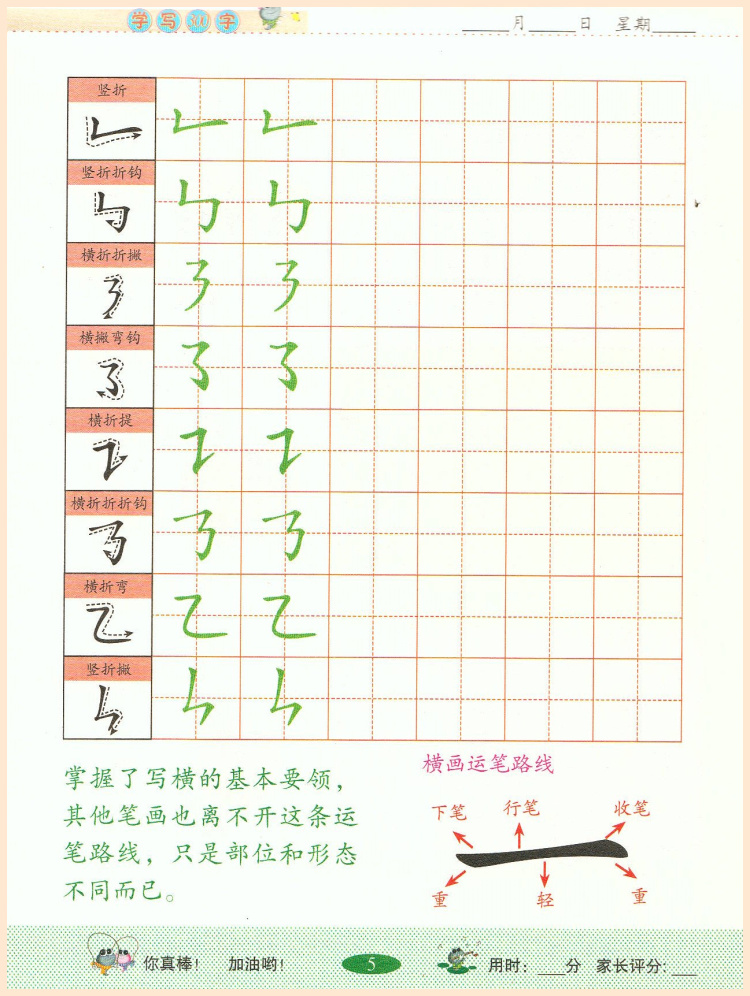 学写300字
____月____日 星期____
竖折
竖折折钩
横折折撇
横撇弯钩
横折提
横折折折钩
横折弯
竖折撇
掌握了写横的基本要领，
其他笔画也离不开这条运
笔路线，只是部位和形态
不同而已。
横画运笔路线
下笔 行笔 收笔
重 轻 重
你真棒！ 加油哟！
5
用时：___分 家长评分：___